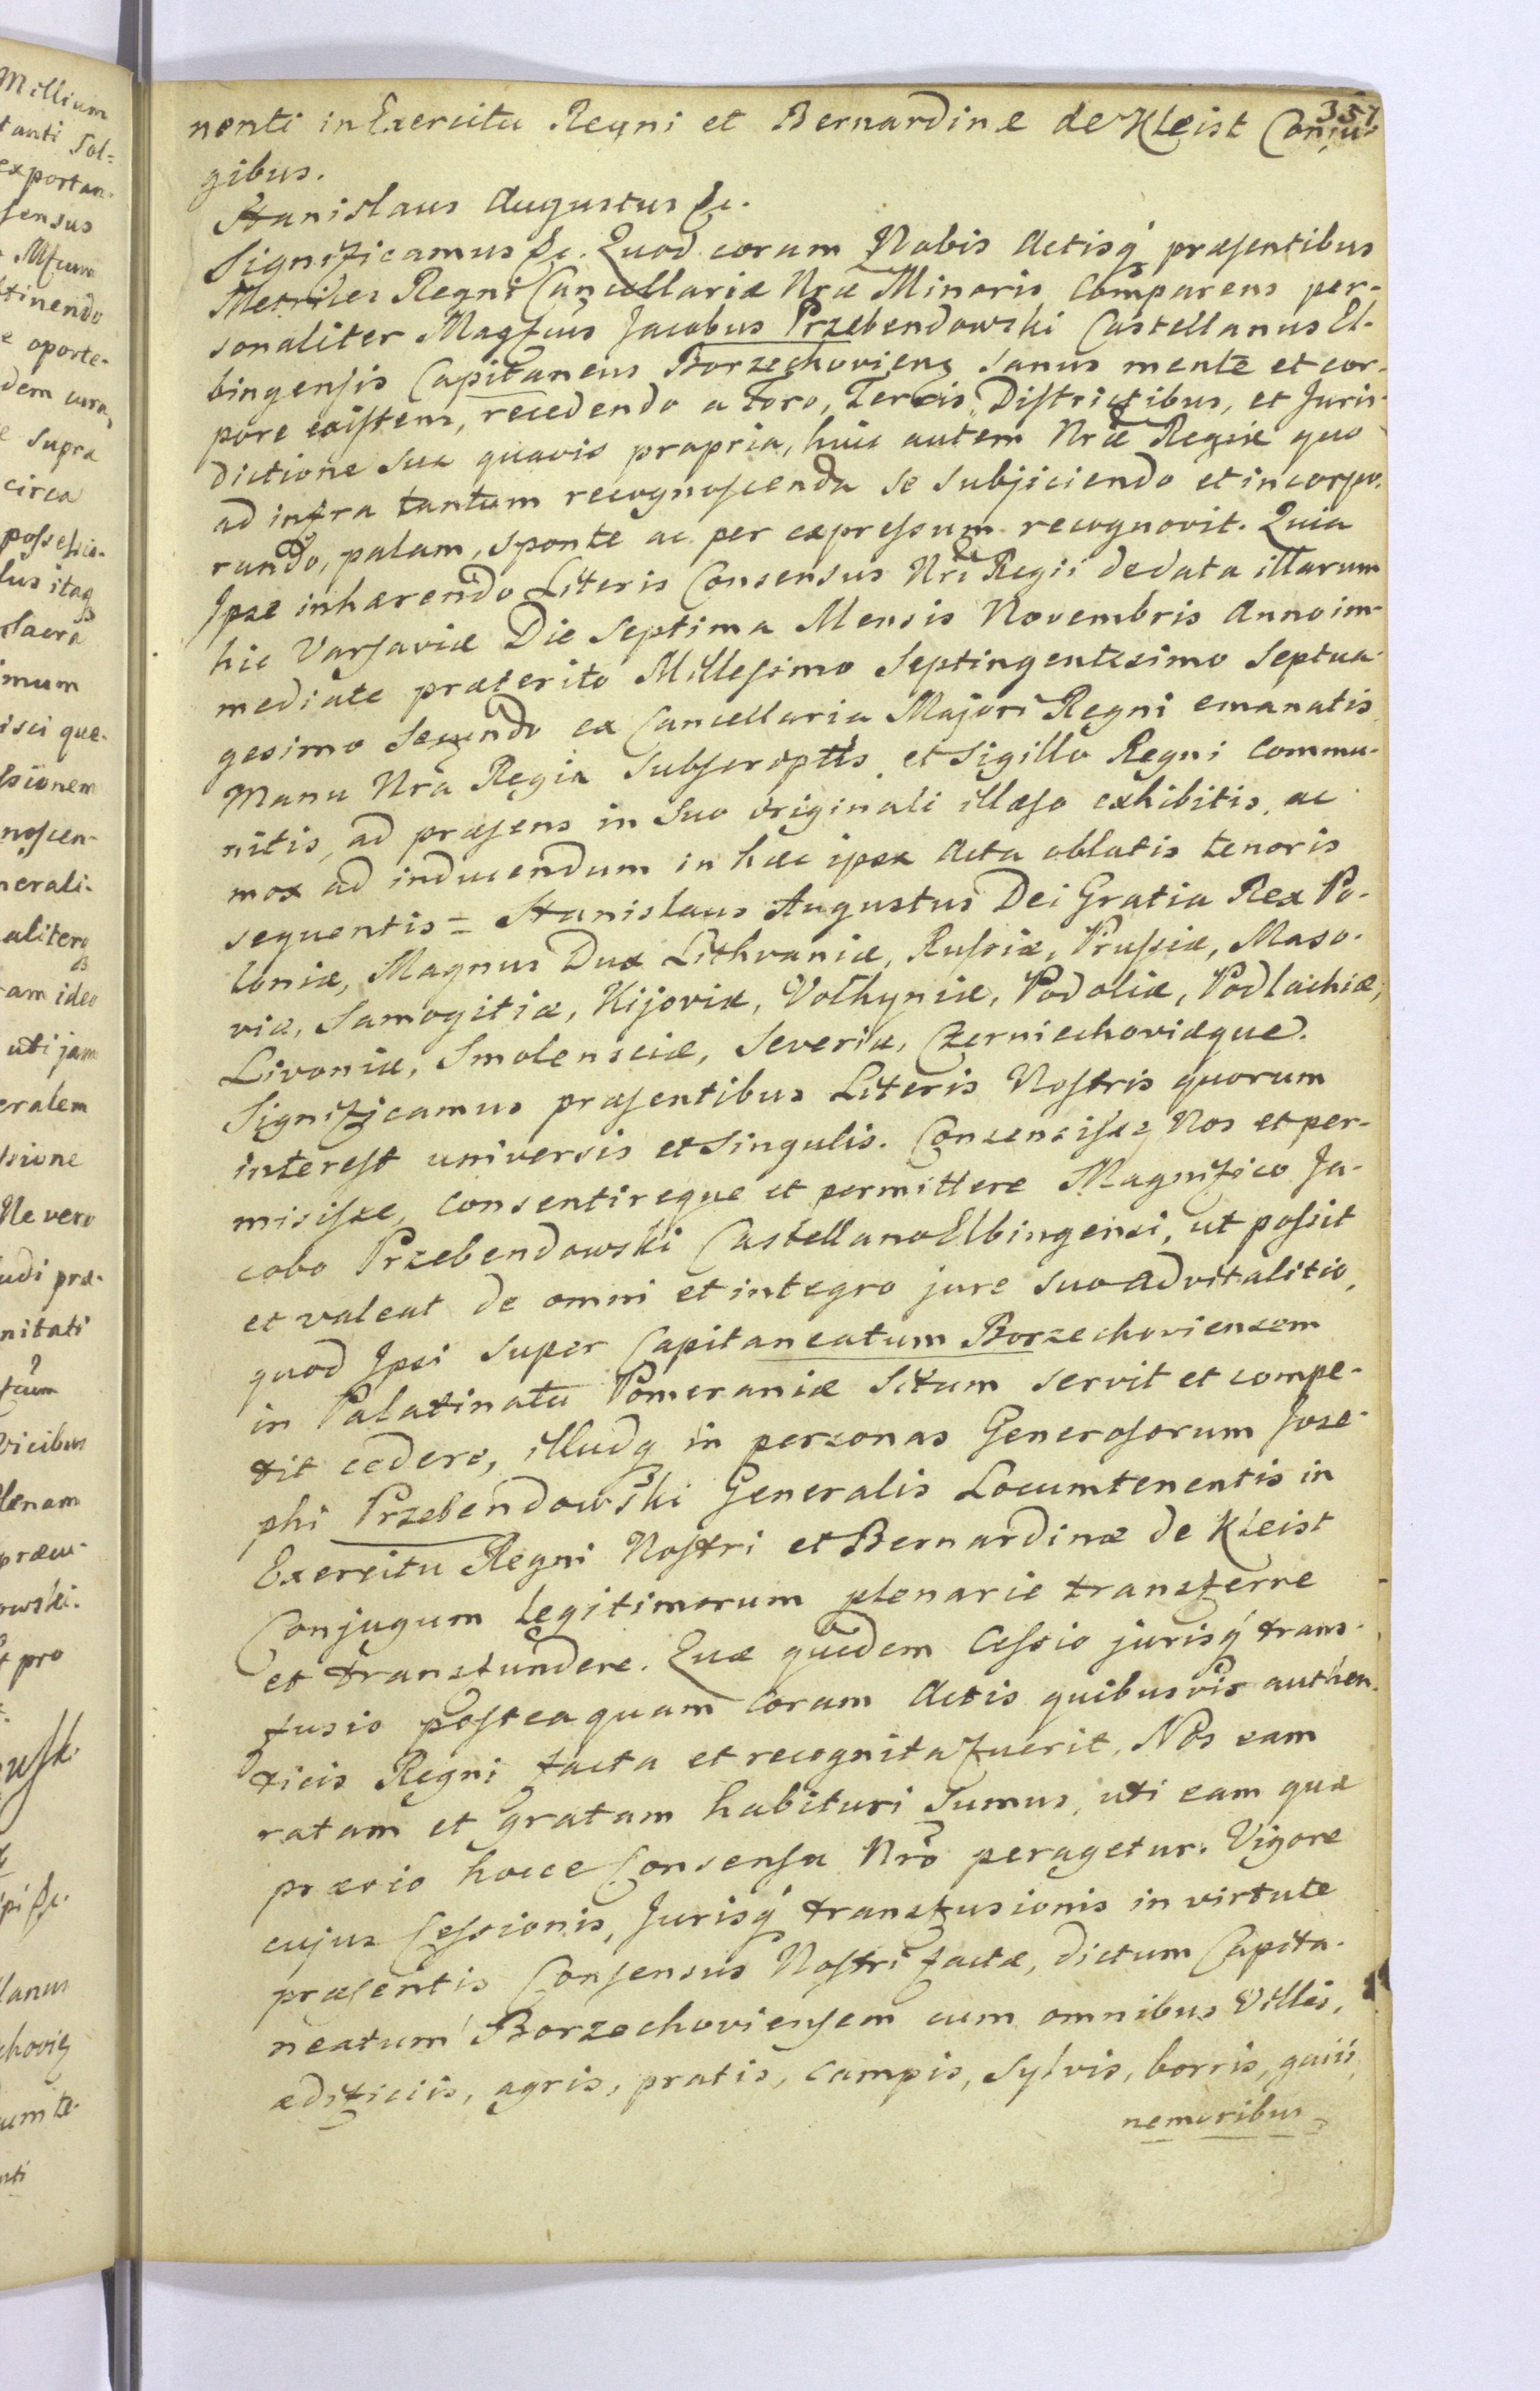 357
nenti in Exercitu Regni et Bernardinæ de Kleist Conju-
gibus.
Stanislaus Augustus &c.
Significamus &c. Quod coram Nobis Actisq́ præsentibus
Metrices Regni Cancellariæ Nræ Minoris comparens per-
sonaliter Magfcus Jacobus Przebendowski Castellanus El-
bingensis Capitaneus Borzechoviens sanus mente et cor-
pore existens, recedendo a Foro, Terris, Districtibus, et Juris-
dictione sua quavis propria, huic autem Nræ Regiæ quo
ad infra tantum recognoscenda se subjiciendo et incorpo-
rando, palam, sponte ac per expressum recognovit. Quia
Ipse inhærendo Literis Consensus Nri Regii de data illarum
hic Varsaviæ Die Septima Mensis Novembris Anno im-
mediate præterito Millesimo Septingentesimo Septua-
gesimo Secundo ex Cancellaria Majori Regni emanatis
Manu Nra Regia subscriptis, et Sigillo Regni commu-
nitis, ad præsens in suo originali illæso exhibitis, ac
mox ad inducendum in hæc ipsa Acta oblatis tenoris
sequentis = Stanislaus Augustus Dei Gratia Rex Po-
loniæ, Magnus Dux Lithvaniæ, Russiæ, Prussiæ, Maso-
viæ, Samogitiæ, Kijoviæ, Volhyniæ, Podoliæ, Podlachiæ,
Livoniæ, Smolensciæ, Severiæ, Czerniechoviæque.
Significamus præsentibus Literis Nostris quorum
interest universis et singulis. Consensisse Nos et per-
misisse, consentireque et permittere Magnifico Ja-
cobo Przebendowski Castellano Elbingensi, ut possit
et valeat de omni et integro jure suo advitalitio,
quod Ipsi super Capitaneatum Borzechoviensem
in Palatinatu Pomeraniæ situm servit et compe-
tit cedere, illudq in personas Generosorum Jose-
phi Przebendowski Generalis Locumtenentis in
Exercitu Regni Nostri et Bernardinæ de Kleist
Conjugum legitimorum plenarie transferre
et transfundere. Quæ quidem Cessio jurisq́ trans-
fusio posteaquam coram Actis quibusvis authen-
ticis Regni facta et recognita fuerit, Nos eam
ratam et gratam habituri sumus, uti eam quæ
prævio hocce Consensu Nro peragetur. Vigore
cujus Cessionis, Jurisq́ transfusionis in virtute
præsentis Consensus Nostri factæ, dictum Capita-
neatum Borzechoviensem cum omnibus Villis,
ædificiis, agris, pratis, campis, sylvis, borris, gaiis,
nemoribus